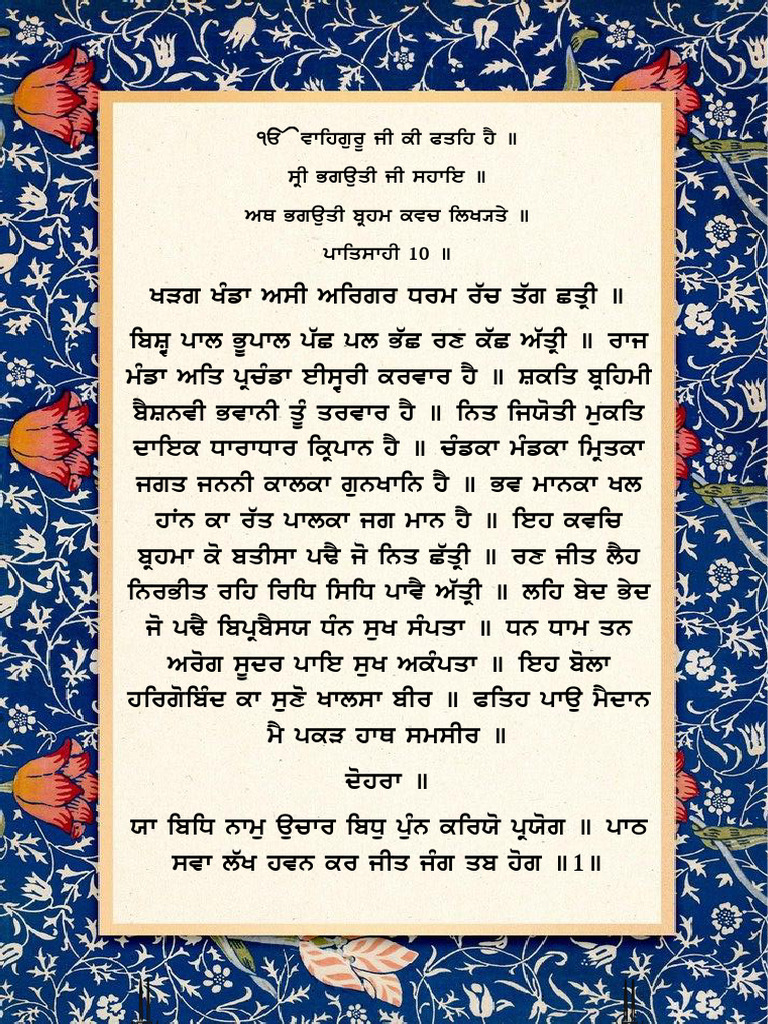 ੴ ਵਾਹਿਗੁਰੂ ਜੀ ਕੀ ਫਤਹਿ ਹੈ ॥
ਸ੍ਰੀ ਭਗਉਤੀ ਜੀ ਸਹਾਇ ॥
ਅਥ ਭਗਉਤੀ ਬ੍ਰਹਮ ਕਵਚ ਲਿਖ੍ਯਤੇ ॥
ਪਾਤਿਸਾਹੀ 10 ॥
ਖੜਗ ਖੰਡਾ ਅਸੀ ਅਰਿਗਰ ਧਰਮ ਰੱਚ ਤੱਗ ਛਤ੍ਰੀ ॥
ਬਿਸ਼੍ਵ ਪਾਲ ਭੂਪਾਲ ਪੱਛ ਪਲ ਭੱਛ ਰਣ ਕੱਛ ਅੱਤ੍ਰੀ ॥ ਰਾਜ
ਮੰਡਾ ਅਤਿ ਪ੍ਰਚੰਡਾ ਈਸ੍ਵਰੀ ਕਰਵਾਰ ਹੈ ॥ ਸ਼ਕਤਿ ਬ੍ਰਹਿਮੀ
ਬੈਸ਼ਨਵੀ ਭਵਾਨੀ ਤੂੰ ਤਰਵਾਰ ਹੈ ॥ ਨਿਤ ਜਿਯੋਤੀ ਮੁਕਤਿ
ਦਾਇਕ ਧਾਰਾਧਾਰ ਕ੍ਰਿਪਾਨ ਹੈ ॥ ਚੰਡਕਾ ਮੰਡਕਾ ਮ੍ਰਿਤਕਾ
ਜਗਤ ਜਨਨੀ ਕਾਲਕਾ ਗੁਨਖਾਨਿ ਹੈ ॥ ਭਵ ਮਾਨਕਾ ਖਲ
ਹਾਂਨ ਕਾ ਰੱਤ ਪਾਲਕਾ ਜਗ ਮਾਨ ਹੈ ॥ ਇਹ ਕਵਚਿ
ਬ੍ਰਹਮਾ ਕੋ ਬਤੀਸਾ ਪਢੈ ਜੋ ਨਿਤ ਛੱਤ੍ਰੀ ॥ ਰਣ ਜੀਤ ਲੈਹ
ਨਿਰਭੀਤ ਰਹਿ ਰਿਧਿ ਸਿਧਿ ਪਾਵੈ ਅੱਤ੍ਰੀ ॥ ਲਹਿ ਬੇਦ ਭੇਦ
ਜੋ ਪਢੈ ਬਿਪ੍ਰਬੈਸਯ ਧੰਨ ਸੁਖ ਸੰਪਤਾ ॥ ਧਨ ਧਾਮ ਤਨ
ਅਰੋਗ ਸੂਦਰ ਪਾਇ ਸੁਖ ਅਕੰਪਤਾ ॥ ਇਹ ਬੋਲਾ
ਹਰਿਗੋਬਿੰਦ ਕਾ ਸੁਣੋ ਖਾਲਸਾ ਬੀਰ ॥ ਫਤਿਹ ਪਾਉ ਮੈਦਾਨ
ਮੈ ਪਕੜ ਹਾਥ ਸਮਸੀਰ ॥
ਦੋਹਰਾ ॥
ਯਾ ਬਿਧਿ ਨਾਮੁ ਉਚਾਰ ਬਿਧੁ ਪੁੰਨ ਕਰਿਯੋ ਪ੍ਰਯੋਗ ॥ ਪਾਠ
ਸਵਾ ਲੱਖ ਹਵਨ ਕਰ ਜੀਤ ਜੰਗ ਤਬ ਹੋਗ ॥1॥